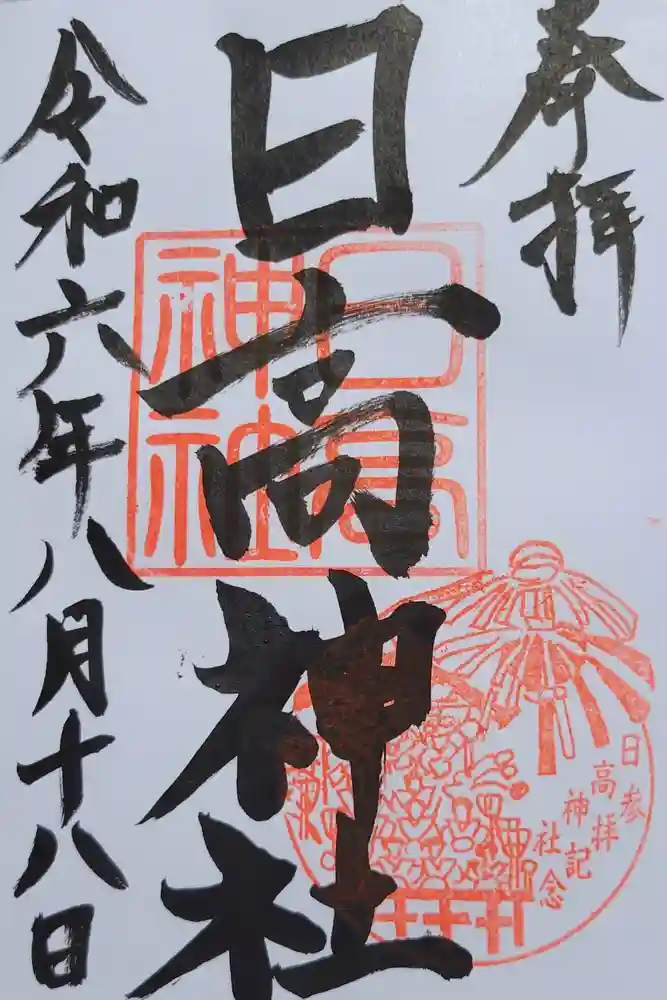 奉拝
日高神社
日高
神社
日高神社
参拝記念
令和六年八月十八日